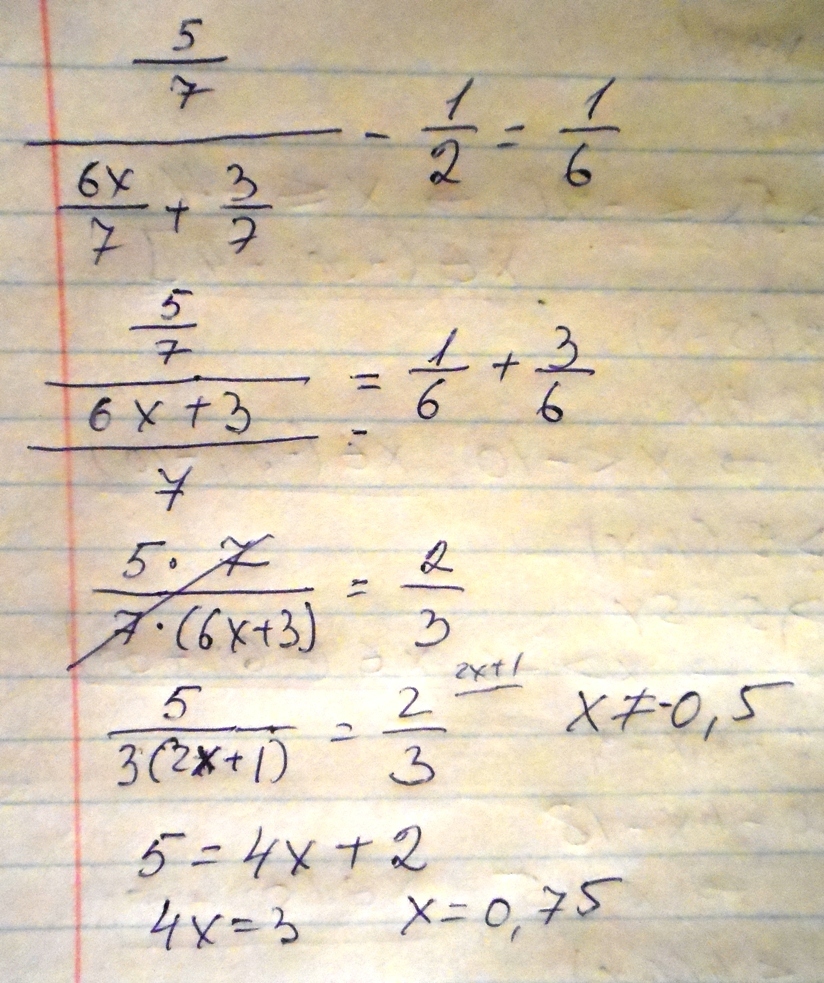 5/7 / (6x/7 + 3/7) - 1/2 = 1/6
5/7 / ((6x+3)/7) = 1/6 + 3/6
5·7 / 7·(6x+3) = 2/3
5 / 3(2x+1) = 2/3 2x+1 x≠-0,5
5=4x+2
4x=3 x=0,75